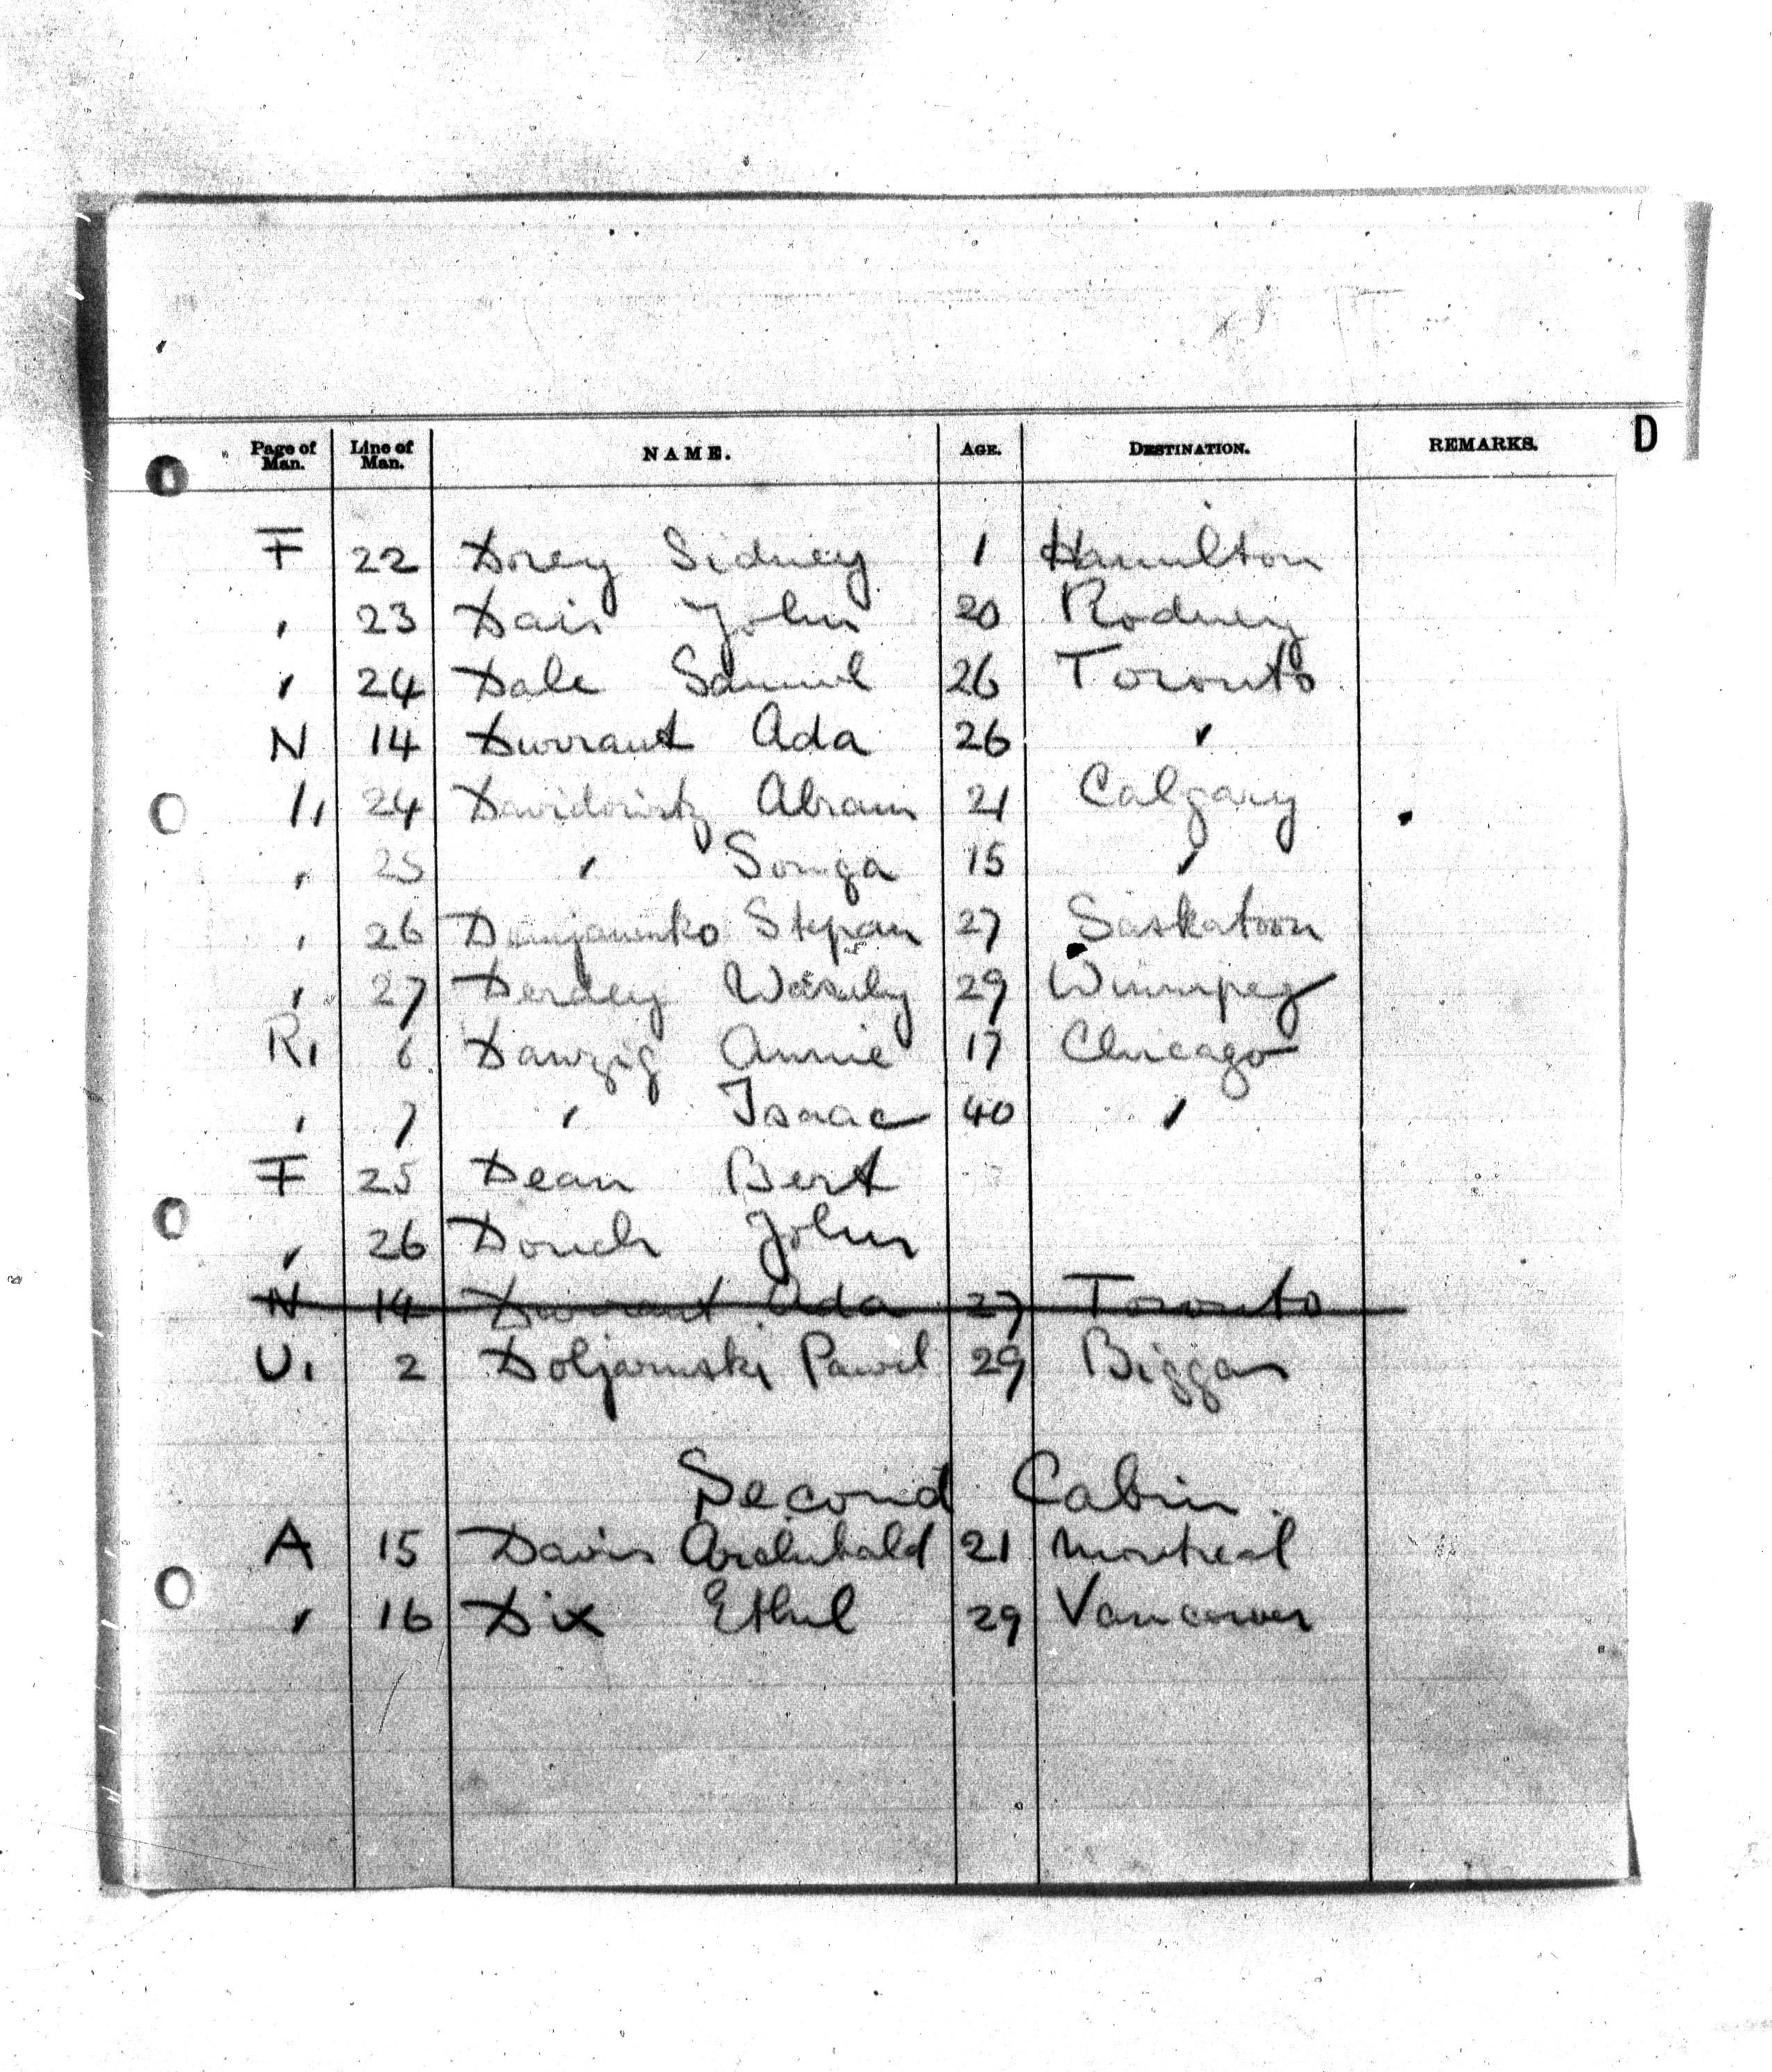 Page of Man. Line of Man. NAME. AGE. DESTINATION. REMARKS. D
F 22 Dorey Sidney 1 Hamilton
" 23 Dais John 20 Rodney
" 24 Dale Samuel 26 Toronto
N 14 Durrant Ada 26 "
24 Davidovitz Abram 21 Calgary
" 25 " Sonya 15 "
" 26 Stepan 27 Saskatoon
" 27 Derdey Wasuly 29 Winnipeg
R1 6 Danzig Annie 17 Chicago
" 7 " Isaac 40 "
F 25 Dean Bert
" 26 Douch John
N 14 Durrant Ada 27 Toronto
U1 2 Doljarnski Pawel 29 Biggar
Second Cabin.
A 15 Davis Archibald 21 Montreal
" 16 Dix Ethel 29 Vancouver